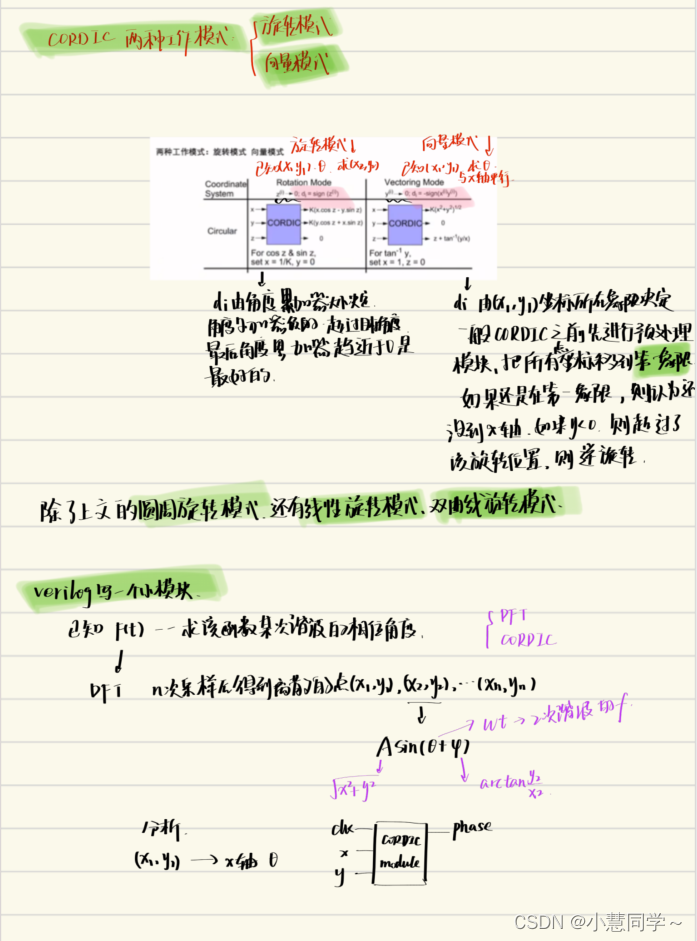 CORDIC 两种工作模式
旋转模式
向量模式
旋转模式↓
向量模式↓
两种工作模式：旋转模式 向量模式
已知(x₁y₁).θ. 求(x₂,y₂)
已知(x₁,y₁), 求θ
与x轴平行.
Coordinate System
Rotation Mode
z⁽ⁱ⁾→ 0; dᵢ = sign (z⁽ⁱ⁾)
Vectoring Mode
y⁽ⁱ⁾→ 0; dᵢ = -sign(x⁽ⁱ⁾y⁽ⁱ⁾)
Circular
x
y
z
CORDIC
K(x cos z - y sin z)
K(y cos z + x sin z)
0
For cos z & sin z,
set x = 1/K, y = 0
x
y
z
CORDIC
K(x²+y²)^1/2
0
z + tan⁻¹(y/x)
For tan⁻¹ y,
set x = 1, z = 0
di 由角度累加器决定
最后角度累加器趋近于0是
最好的.
di 由(x₁,y₁)坐标所在象限决定
一般CORDIC之前先进行预处理
模块, 把所有坐标移到第一象限
如果还是在第一象限, 则认为还
没到x轴. 如果y<0. 则超过了
该旋转位置, 则逆旋转.
除了上文的圆周旋转模式. 还有线性旋转模式、双曲线旋转模式.
verilog写一个小模块.
已知 F(t) -- 求该函数某次谐波的相位角度.
DFT
CORDIC
↓
DFT n次采样后得到离散的点(x₁,y₁), (x₂,y₂), ⋯(xn,yn)
↓
→ wt →
Asin(θ+φ)
√x²+y²
arctan y₂/x₂
分析.
(x₁,y₁) → x轴 θ
clk
x
y
CORDIC
module
phase
CSDN @小慧同学～